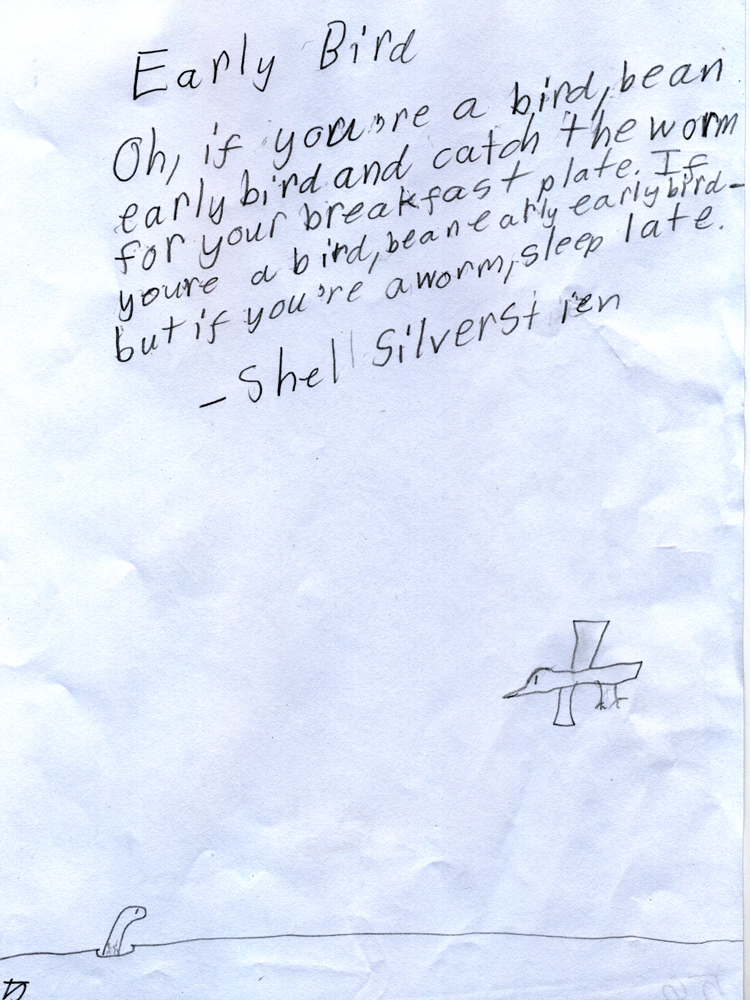 Early Bird
Oh, if you're a bird, be an
early bird and catch the worm
for your breakfast plate. If
youre a bird, be an early early bird-
but if you're a worm, sleep late.
-Shell Silverstien